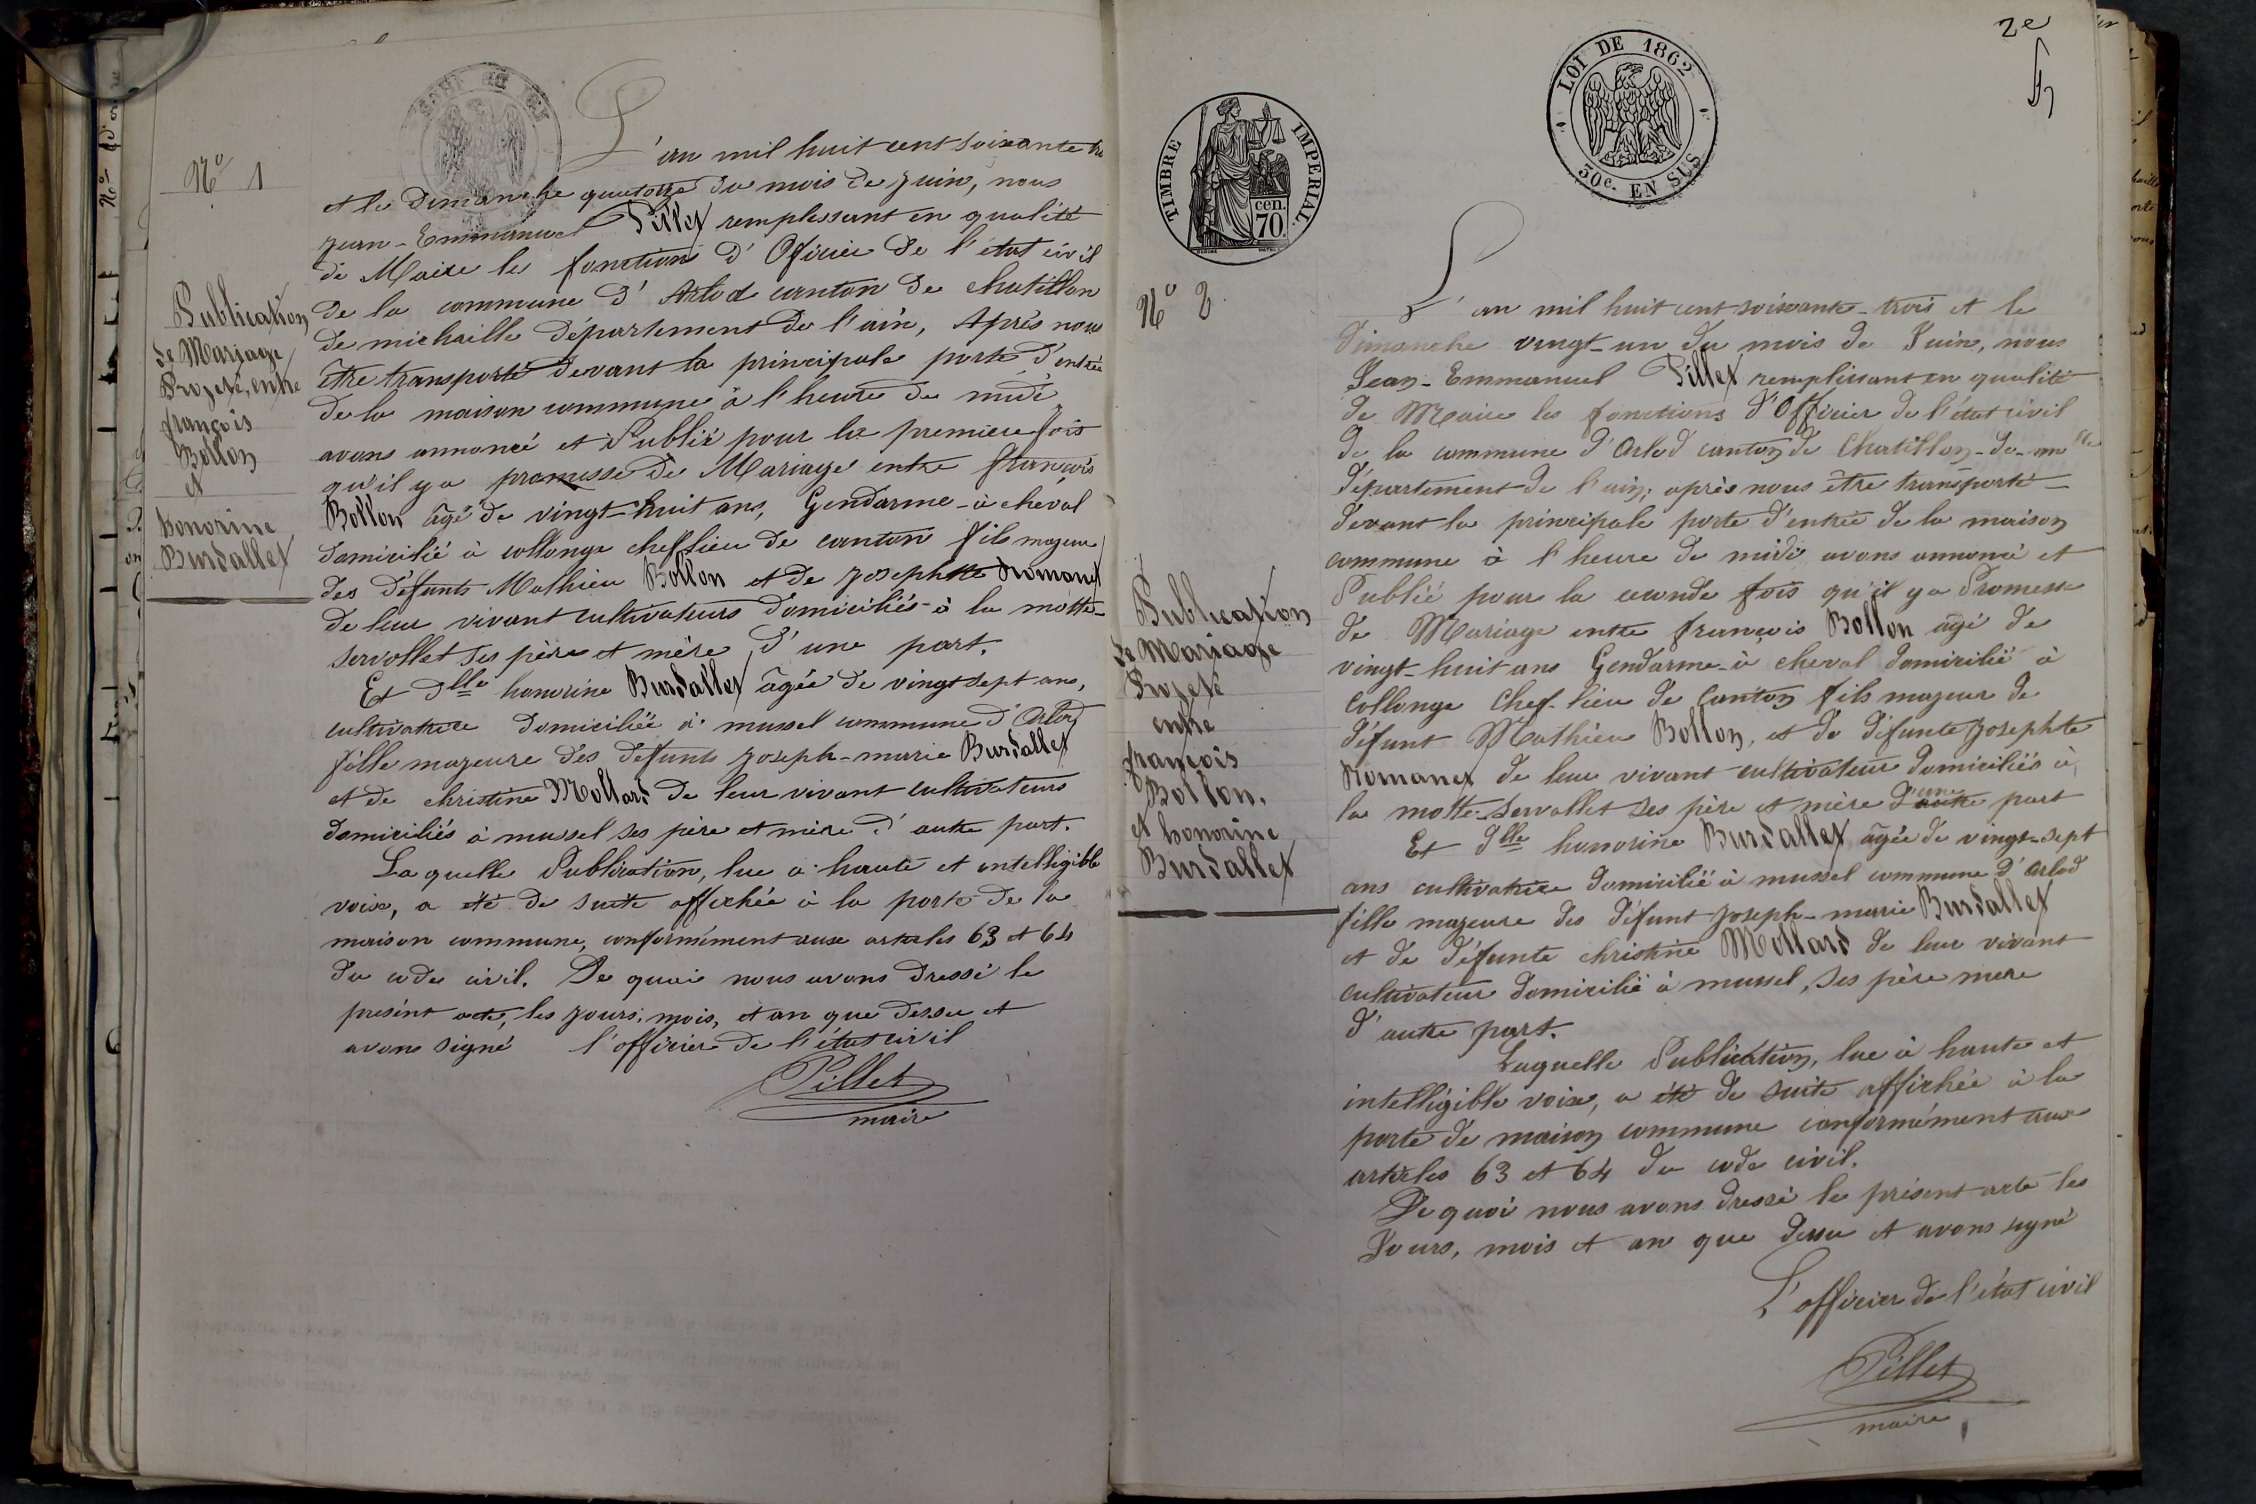 Nº 1
Publication
de Mariage
Projeté, entre
françois
Bollon
et
honorine
Burdallet
L'an mil huit cent soixante
et le Dimanche quatorze du mois de Juin, nous
Jean-Emmanuel Pillet remplissant en qualité
de Maire les fonctions d'Oficier de l'état civil
de la commune d'Arlod canton de chatillon
de michaille département de l'ain, Après nous
être transporté devant la principale porte d'entrée
de la maison commune à l'heure de midi
avons annoncé et Publié pour la premiere fois
qu'il ya promesse de Mariage entre françois
Bollon âgé de vingt-huit ans, Gendarme-à cheval
domicilié à collonge cheflieu de canton fils majeur
des défunts Mathieu Bollon et de Josephte Romanet
de leur vivant cultivateurs domiciliés à la motte-
servollet ses père et mère d'une part.
Et Dlle honorine Burdallet âgée de vingt sept ans,
cultivatrice domiciliée à mussel commune d'Arlod
fille majeure des défunts joseph-marie Burdallet
et de christine Mollard de leur vivant cultivateurs
domiciliés à mussel ses père et mère d'autre part.
Laquelle Publication, lue à haute et intelligible
voix, a été de suite affichée à la porte de la
maison commune, conformément aux articles 63 et 64
du code civil. De quoi nous avons dressé le
présent acte, les jours, mois, et an que dessu et
avons signé l'officier de l'état civil
Pillet
maire
2e
TIMBRE IMPERIAL
cen.
70.
LOI DE 1862
30c. EN SUS
Nº 2
Publication
de Mariage
Projeté
entre
françois
Bollon.
et honorine
Burdallet
L'an mil huit cent soixante-trois et le
Dimanche vingt-un du mois de Juin, nous
Jean-Emmanuel Pillet remplissant en qualité
de Maire les fonctions d'Officier de l'état civil
de la commune d'Arlod canton de Chatillon-de-mlle
département de l'ain; après nous être transporté
devant la principale porte d'entrée de la maison
commune à l'heure de midi avons annoncé et
Publié pour la seconde fois qu'il ya Promesse
de Mariage entre françois Bollon âgé de
vingt-huit ans Gendarme-à cheval domicilié à
Collonge Chef-lieu de Canton fils majeur de
défunt Mathieu Bollon, et de défunte josephte
Romanet de leur vivant cultivateur domiciliés à
la motte-servollet ses père et mère d'une part
Et Dlle honorine Burdallet âgée de vingt-sept
ans cultivatrice domicilié à mussel commune d'arlod
fille majeure des défunt joseph-marie Burdallet
et de défunte christine Mollard de leur vivant
cultivateur domicilié à mussel, ses père mere
d'autre part.
Laquelle Publication, lue à haute et
intelligible voix, a été de suite affichée à la
porte de maison commune conformément aux
articles 63 et 64 du code civil.
De quoi nous avons dressé le présent acte les
Jours, mois et an que dessu et avons signé
L'officier de l'état civil
Pillet
maire